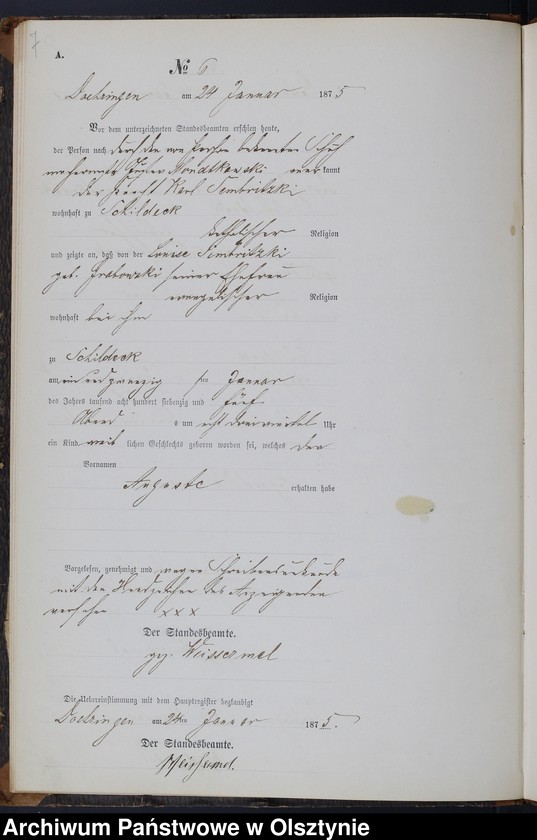 7
A.
№ 6
Doehringen am 24 Januar 1875
Vor dem unterzeichneten Standesbeamten erschien heute,
der Person nach durch den von Person bekannten
Mondtkowski anerkannt
der Knecht Karl Simbritzki
wohnhaft zu Schildeck
katholischer Religion
und zeigte an, daß von der Louise Simbritzki
geb. Grabowski seiner Ehefrau
evangelischer Religion
wohnhaft bei ihm
zu Schildeck
am ein und zwanzig ten Januar
des Jahrs tausend acht hundert siebenzig und fünf
Abend s um acht dreiviertel Uhr
ein Kind weib lichen Geschlechts geboren worden sei, welches den
Vornamen
Auguste
erhalten habe
Vorgelesen, genehmigt und wegen
mit den Handzeichen des Anzeigenden
versehen xxx
Der Standesbeamte.
gez. Weissermel
Die Uebereinstimmung mit dem Hauptregister beglaubigt
Doehringen am 24ten Januar 1875.
Der Standesbeamte.
Weissermel.
Archiwum Państwowe w Olsztynie